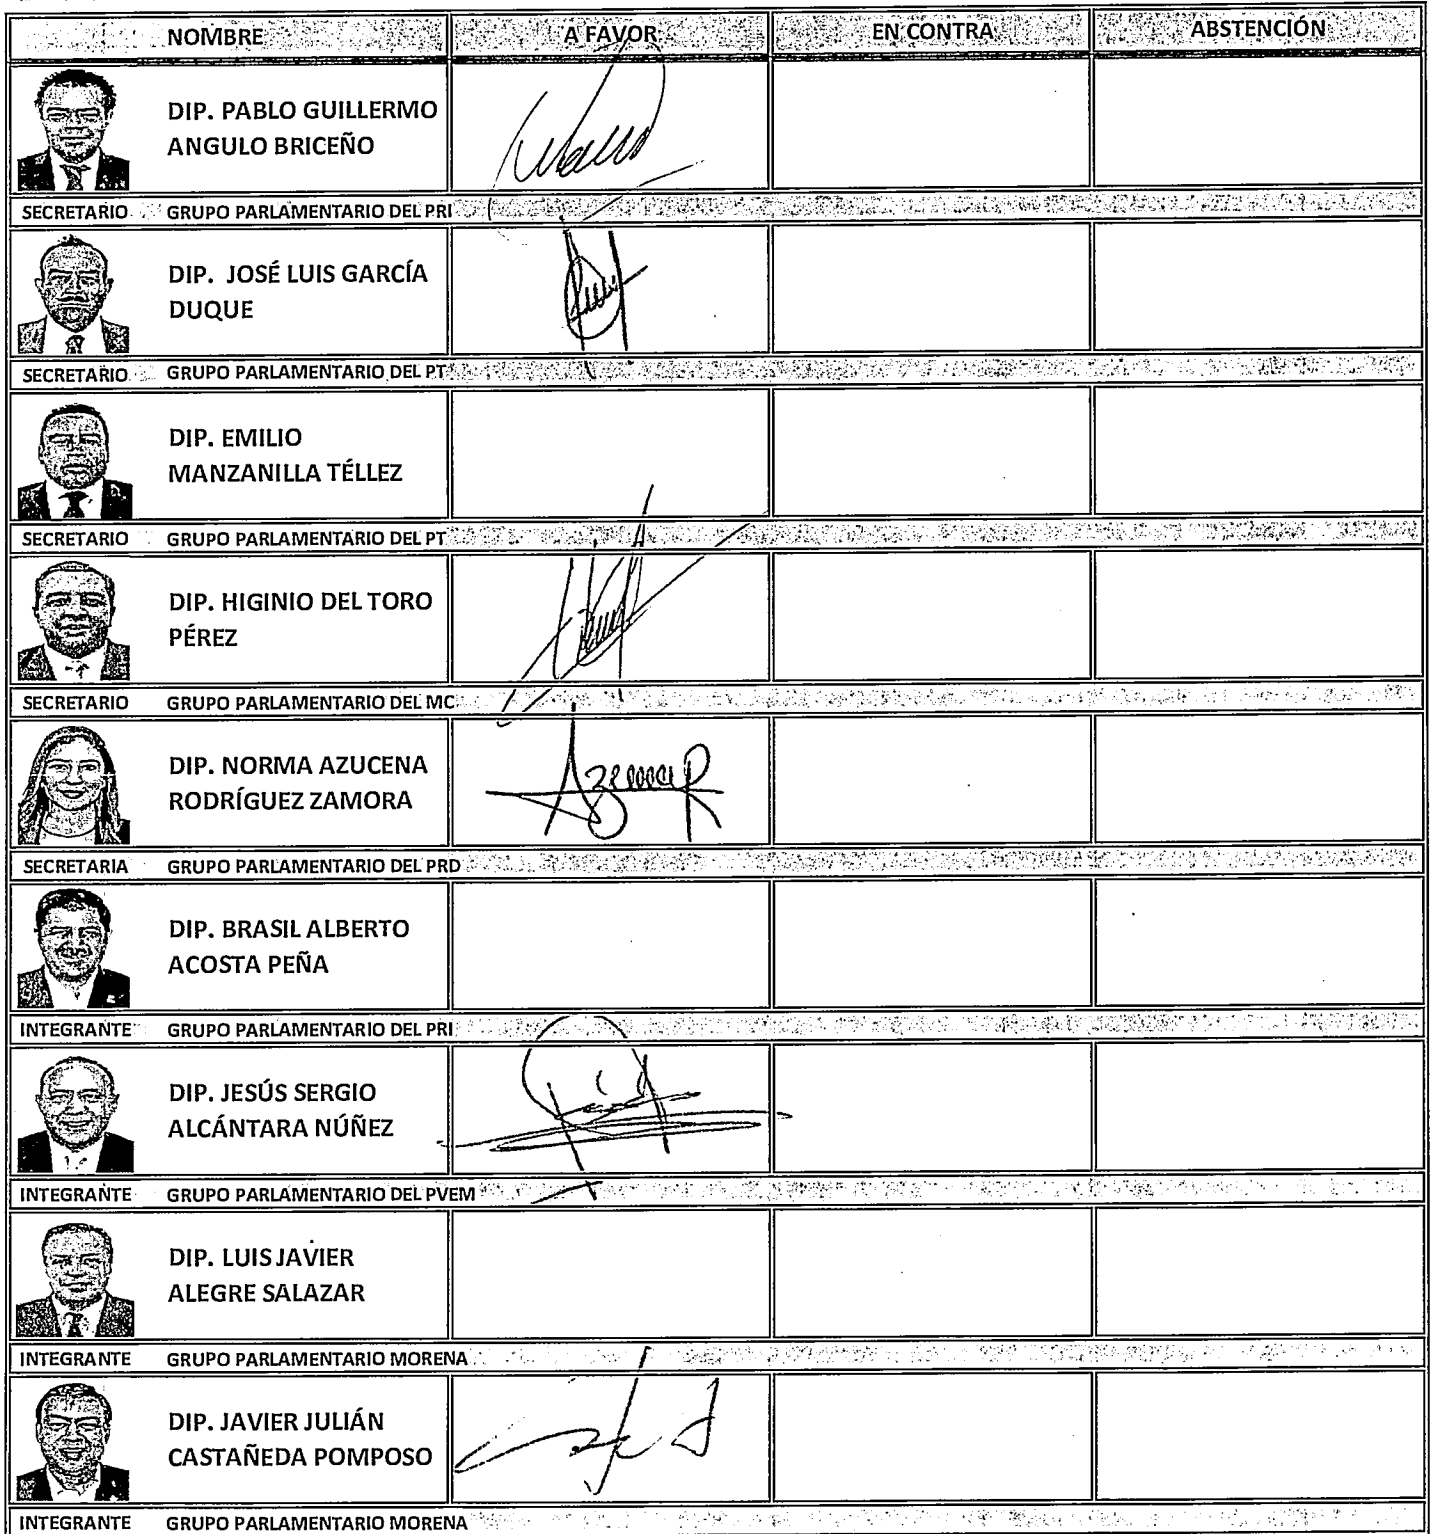 NOMBRE A FAVOR EN CONTRA ABSTENCIÓN
DIP. PABLO GUILLERMO
ANGULO BRICEÑO
SECRETARIO GRUPO PARLAMENTARIO DEL PRI
DIP. JOSÉ LUIS GARCÍA
DUQUE
SECRETARIO GRUPO PARLAMENTARIO DEL PT
DIP. EMILIO
MANZANILLA TÉLLEZ
SECRETARIO GRUPO PARLAMENTARIO DEL PT
DIP. HIGINIO DEL TORO
PÉREZ
SECRETARIO GRUPO PARLAMENTARIO DEL MC
DIP. NORMA AZUCENA
RODRÍGUEZ ZAMORA
SECRETARIA GRUPO PARLAMENTARIO DEL PRD
DIP. BRASIL ALBERTO
ACOSTA PEÑA
INTEGRANTE GRUPO PARLAMENTARIO DEL PRI
DIP. JESÚS SERGIO
ALCÁNTARA NÚÑEZ
INTEGRANTE GRUPO PARLAMENTARIO DEL PVEM
DIP. LUIS JAVIER
ALEGRE SALAZAR
INTEGRANTE GRUPO PARLAMENTARIO MORENA
DIP. JAVIER JULIÁN
CASTAÑEDA POMPOSO
INTEGRANTE GRUPO PARLAMENTARIO MORENA